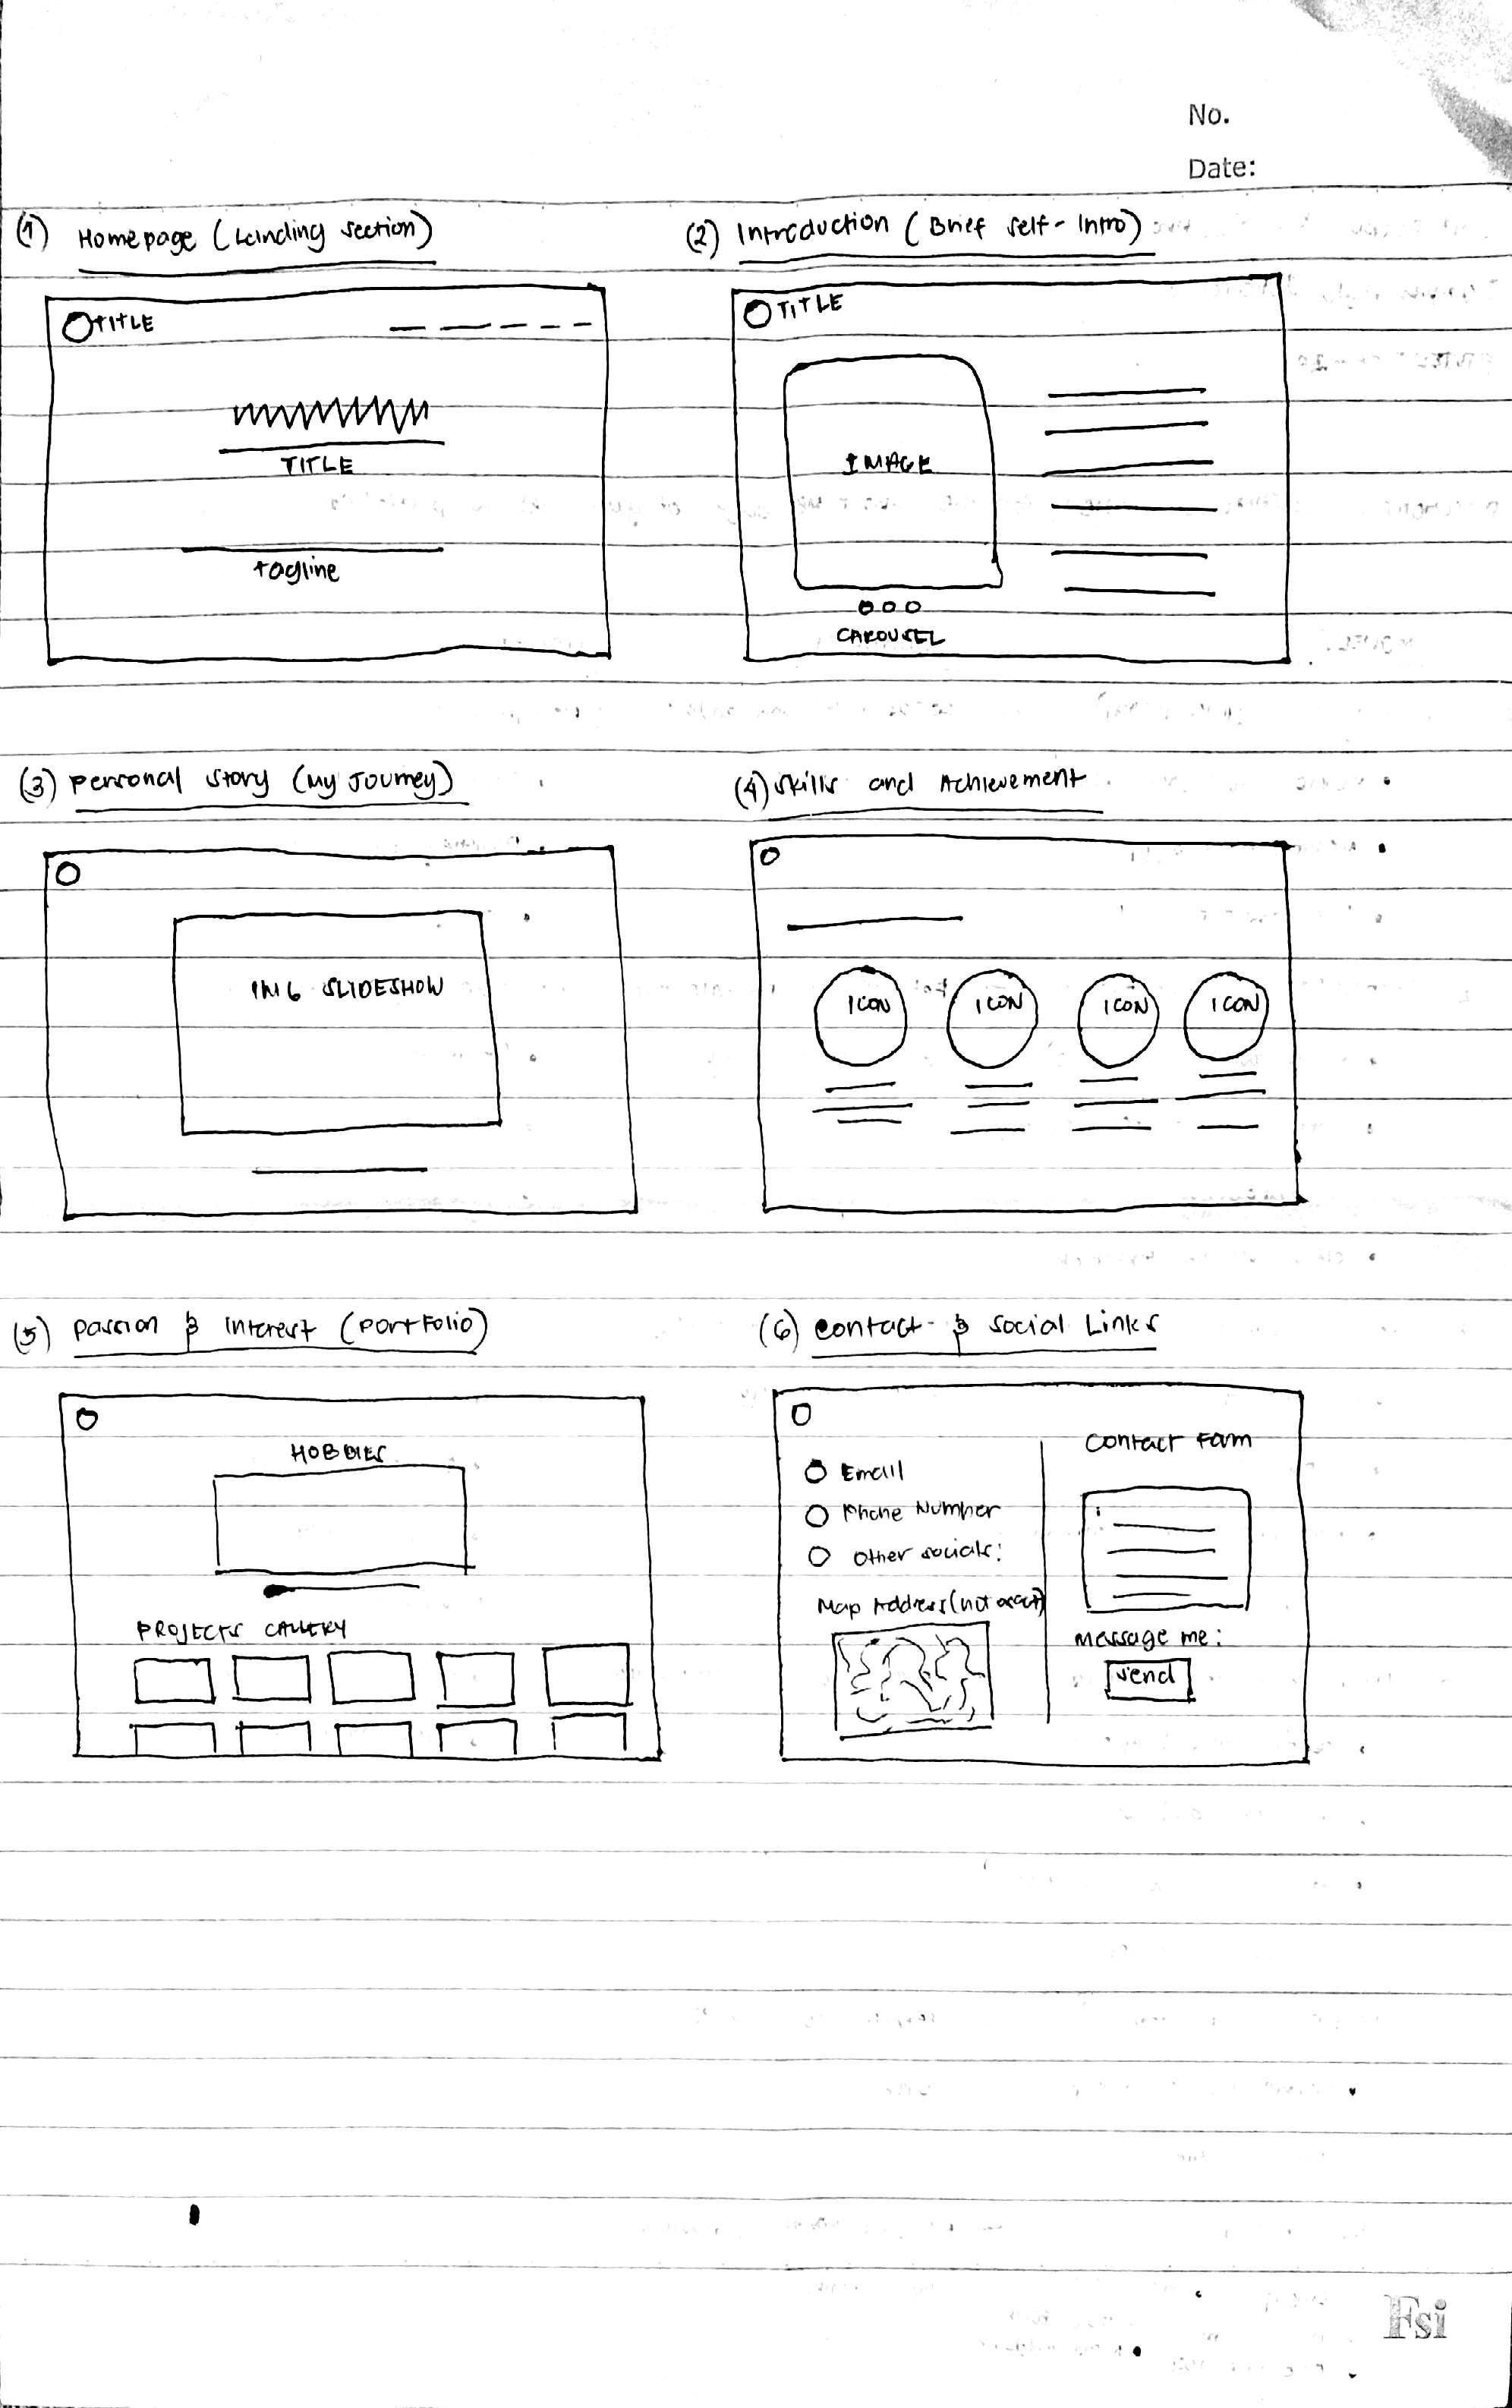 No.
Date:
(1) Homepage (Landing Section)
TITLE
TITLE
tagline
(2) Introduction (Brief Self-Intro)
TITLE
IMAGE
CAROUSEL
(3) Personal Story (My Journey)
IMG SLIDESHOW
(4) Skills and Achievement
ICON ICON ICON ICON
(5) Passion & Interest (Portfolio)
HOBBIES
PROJECTS GALLERY
(6) Contact & Social Links
Email
Phone Number
Other socials:
Map Address (not exact)
Contact Form
Message me:
Send
Fsi